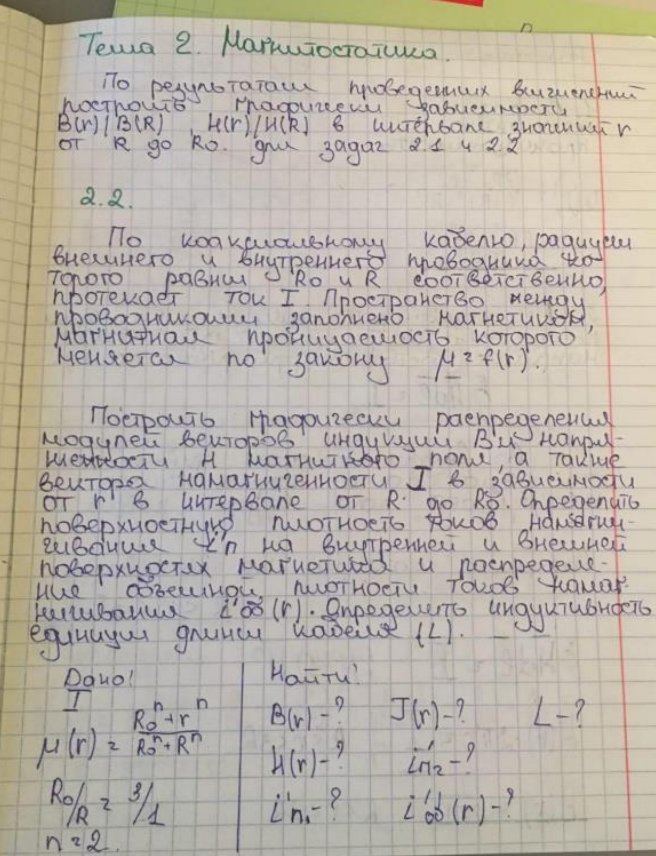 Тема 2. Магнитостатика.
По результатам проведенных вычислений
построить графически зависимости
B(r)/B(R), H(r)/H(R) в интервале значений r
от R до Ro. для задач 2.1 и 2.2
2.2.
По коаксиальному кабелю, радиусы
внешнего и внутреннего проводника ко-
торого равны Ro и R соответственно,
протекает ток I. Пространство между
проводниками заполнено магнетиком,
магнитная проницаемость которого
меняется по закону μ = f(r).
Построить графически распределения
модулей векторов индукции B и напря-
женности H магнитного поля, а также
вектора намагниченности J в зависимости
от r в интервале от R до Ro. Определить
поверхностную плотность токов намагни-
чивания i'n на внутренней и внешней
поверхностях магнетика и распределе-
ние объемной плотности токов намаг-
ничивания i'об(r). Определить индуктивность
единицы длины кабеля (L).
Дано:
I
μ(r) = (Ro^n + r^n)/(Ro^n + R^n)
Ro/R = 3/1
n = 2.
Найти:
B(r) - ? J(r) - ? L - ?
H(r) - ? i'n2 - ?
i'n1 - ? i'об(r) - ?